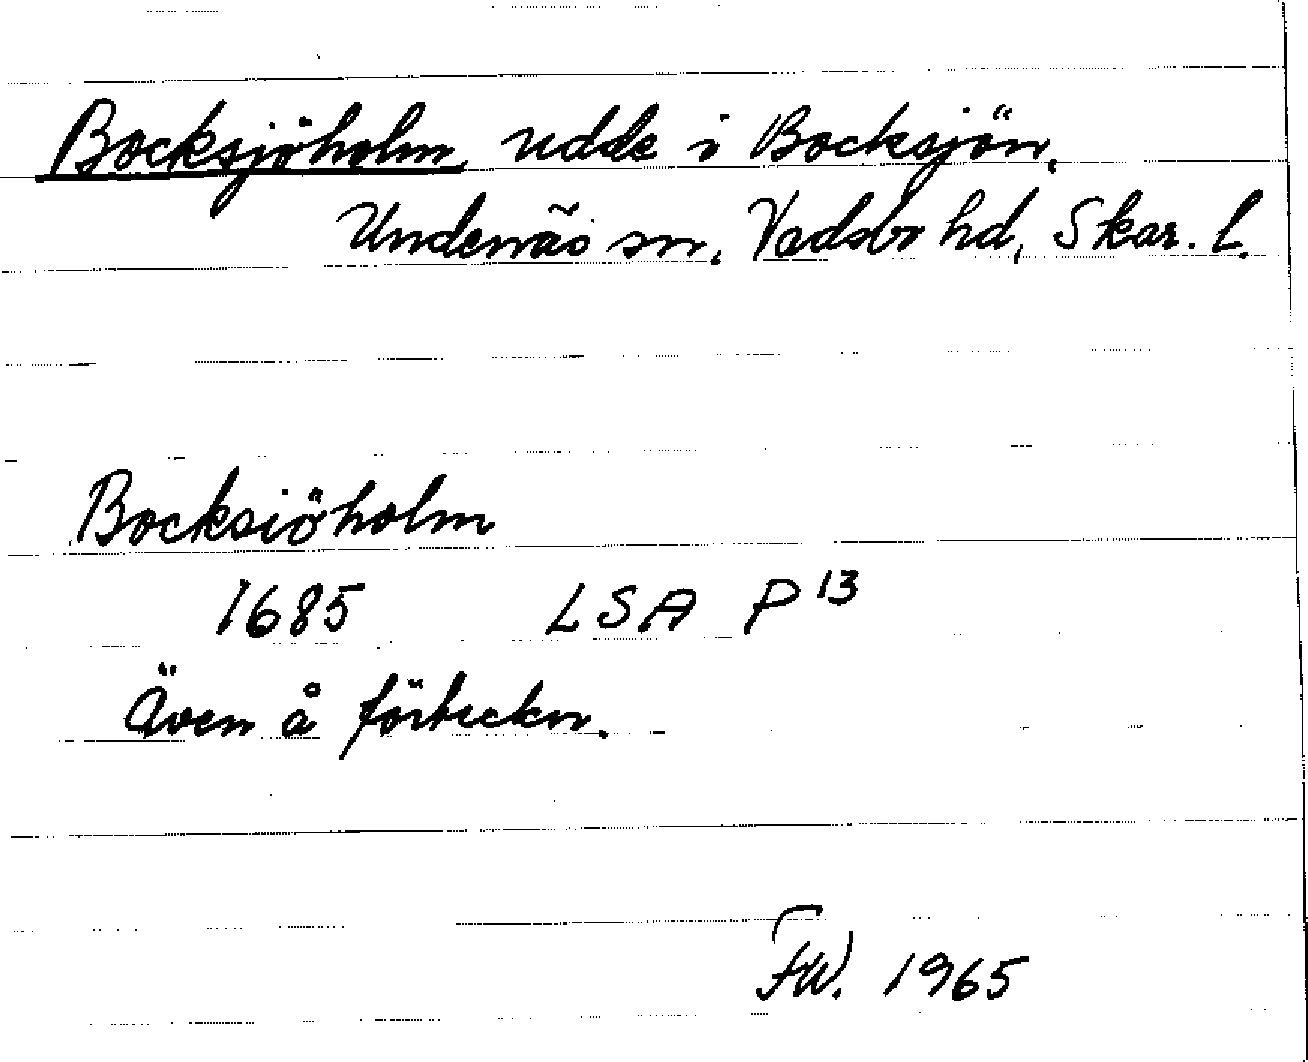 Bocksjöholm, udde i Bocksjön,
Undenäs sn, Vadsbo hd, Skar. L.
Bocksiöholm
1685 LSA P 13
Även å förteckn.
FW. 1965